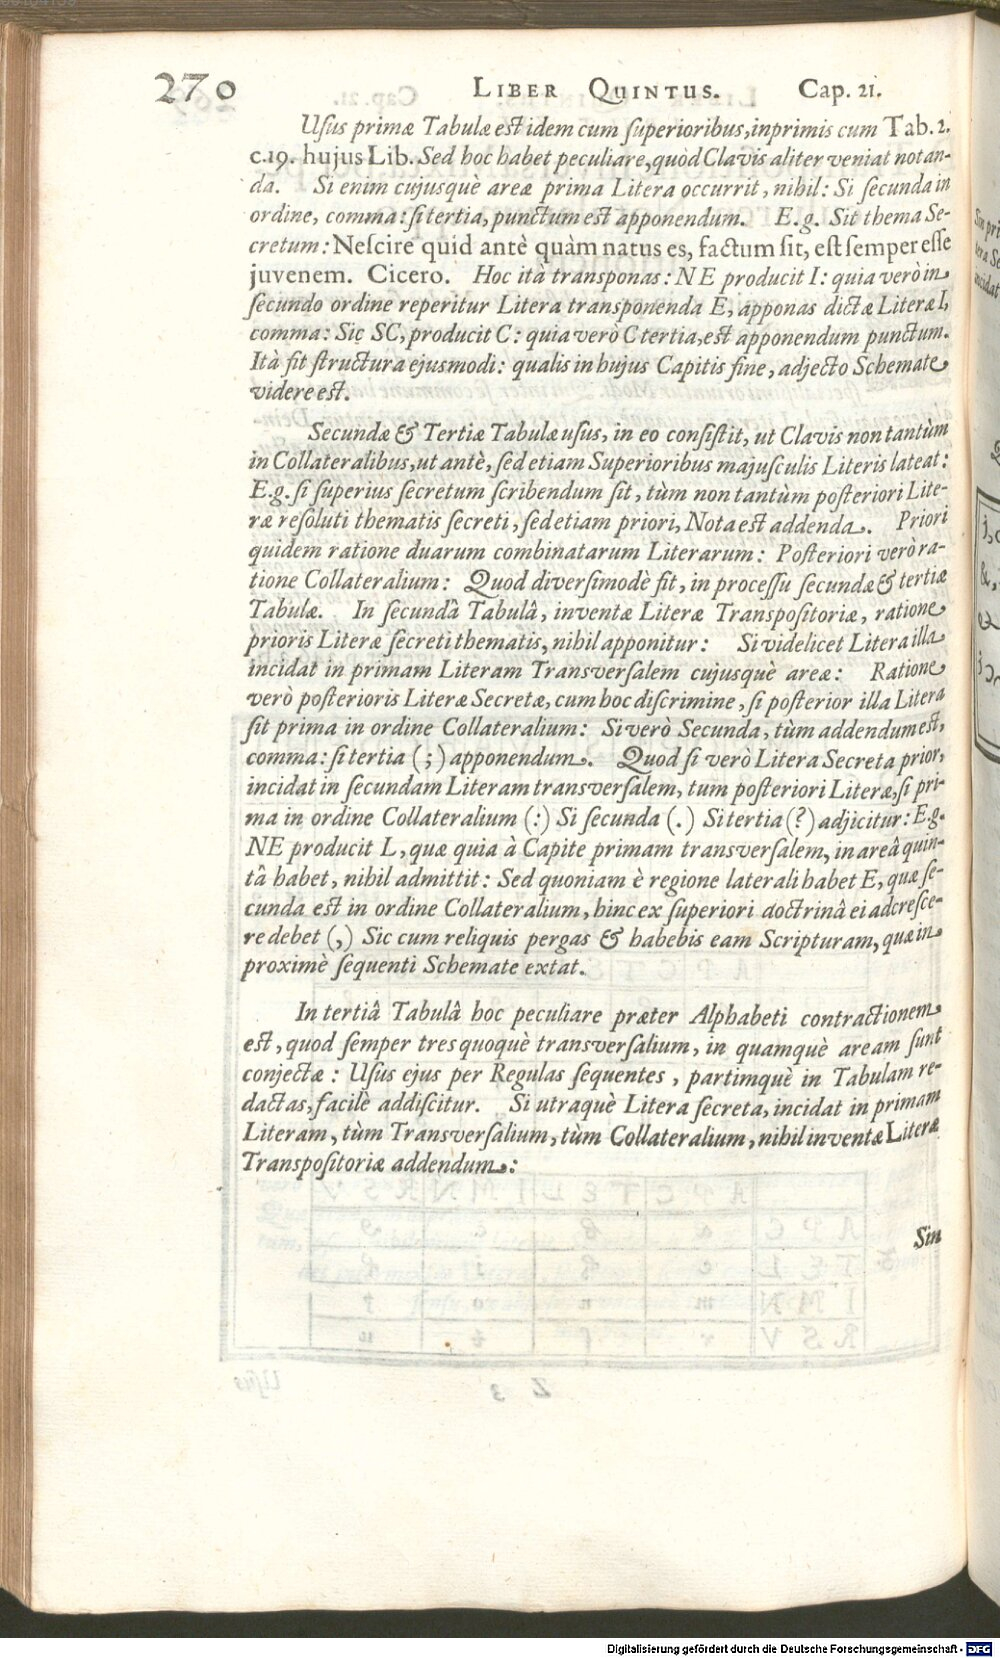 270 LIBER QUINTUS. Cap. 21.
Usus primæ Tabulæ est idem cum superioribus, inprimis cum Tab. 2.
c.19. hujus Lib. Sed hoc habet peculiare, quòd Clavis aliter veniat notan-
da. Si enim cujusquè areæ prima Litera occurrit, nihil: Si secunda in
ordine, comma: si tertia, punctum est apponendum. E.g. Sit thema Se-
cretum: Nescire quid antè quàm natus es, factum sit, est semper esse
juvenem. Cicero. Hoc ità transponas: NE producit I: quia verò in
secundo ordine reperitur Litera transponenda E, apponas dictæ Literæ I,
comma: Sic SC, producit C: quia verò C tertia, est apponendum punctum.
Ità fit structura ejusmodi: qualis in hujus Capitis fine, adjecto Schemate
videre est.
Secundæ & Tertiæ Tabulæ usus, in eo consistit, ut Clavis non tantùm
in Collateralibus, ut antè, sed etiam Superioribus majusculis Literis lateat:
E.g. si superius secretum scribendum sit, tùm non tantùm posteriori Lite-
ræ resoluti thematis secreti, sed etiam priori, Nota est addenda. Priori
quidem ratione duarum combinatarum Literarum: Posteriori verò ra-
tione Collateralium: Quod diversimodè fit, in processu secundæ & tertiæ
Tabulæ. In secundâ Tabulâ, inventæ Literæ Transpositoriæ, ratione
prioris Literæ secreti thematis, nihil apponitur: Si videlicet Litera illa
incidat in primam Literam Transversalem cujusquè areæ: Ratione
verò posterioris Literæ Secretæ, cum hoc discrimine, si posterior illa Litera
sit prima in ordine Collateralium: Si verò Secunda, tùm addendum est,
comma: si tertia (;) apponendum. Quod si verò Litera Secreta prior,
incidat in secundam Literam transversalem, tum posteriori Literæ, si pri-
ma in ordine Collateralium (:) Si secunda (.) Si tertia (?) adjicitur: E.g.
NE producit L, quæ quia à Capite primam transversalem, in areâ quin-
tâ habet, nihil admittit: Sed quoniam è regione laterali habet E, quæ se-
cunda est in ordine Collateralium, hinc ex superiori doctrinâ ei adcresce-
re debet (,) Sic cum reliquis pergas & habebis eam Scripturam, quæ in
proximè sequenti Schemate extat.
In tertiâ Tabulâ hoc peculiare præter Alphabeti contractionem
est, quod semper tres quoquè transversalium, in quamquè aream sunt
conjectæ: Usus ejus per Regulas sequentes, partimquè in Tabulam re-
dactas, facilè addiscitur. Si utraquè Litera secreta, incidat in primam
Literam, tùm Transversalium, tùm Collateralium, nihil inventæ Literæ
Transpositoriæ addendum:
Sin
Digitalisierung gefördert durch die Deutsche Forschungsgemeinschaft - DFG